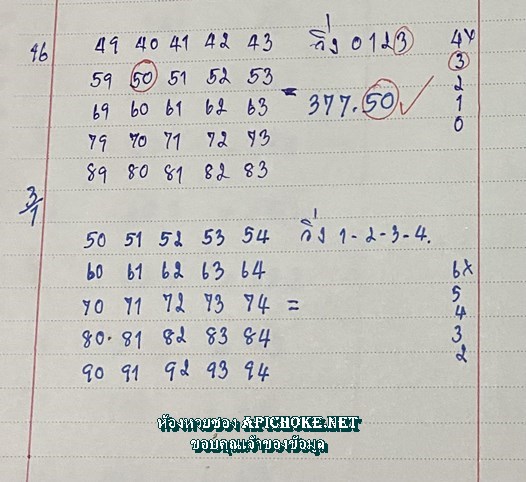 16 49 40 41 42 43 วิ่ง 0 1 2 3 4x
59 50 51 52 53 3
= 377.50 2
69 60 61 62 63 1
79 70 71 72 73 0
89 80 81 82 83
3/1
50 51 52 53 54 วิ่ง 1-2-3-4.
60 61 62 63 64 6x
70 71 72 73 74 = 5
4
80. 81 82 83 84 3
90 91 92 93 94 2
ห้องหวยซอง APICHOKE.NET
ขอบคุณเจ้าของข้อมูล